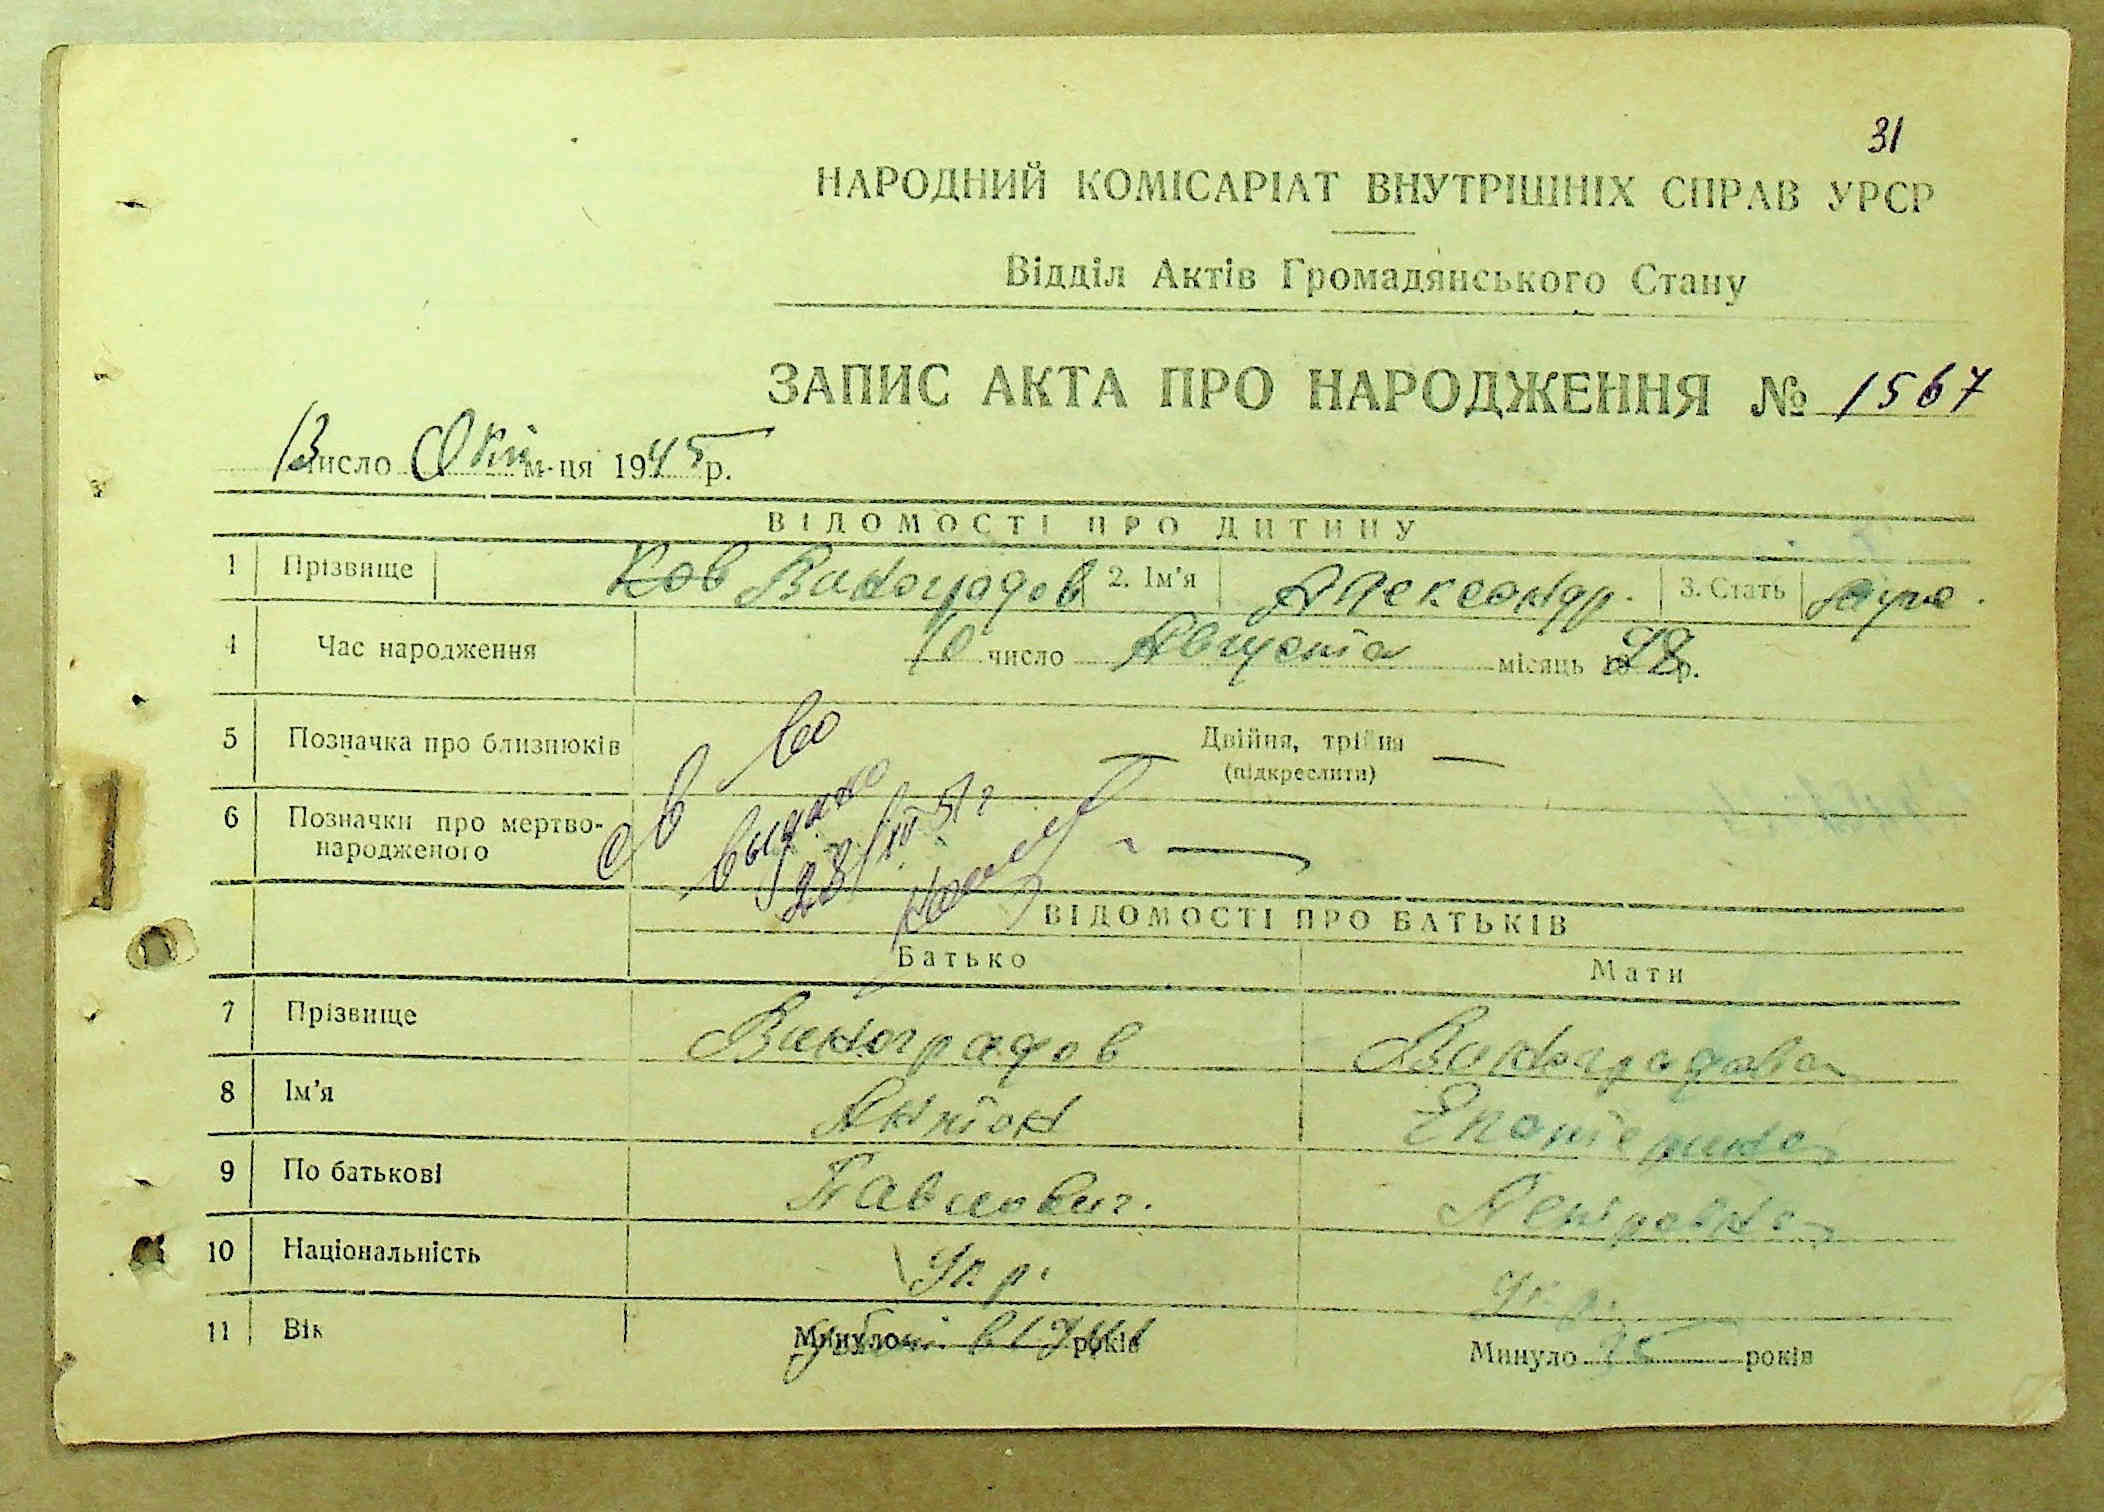 31
НАРОДНИЙ КОМІСАРІАТ ВНУТРІШНІХ СПРАВ УРСР
Відділ Актів Громадянського Стану
ЗАПИС АКТА ПРО НАРОДЖЕННЯ № 1567
13 число Окт м-ця 1945 р.
ВІДОМОСТІ ПРО ДИТИНУ
1 Прізвище Ков Виноградов 2. Ім'я Александр. 3. Стать муж.
4 Час народження 10 число Августа місяць 1928 р.
5 Позначка про близнюків Двійня, трійня —
(підкреслити)
св во
выдано
28/III 51 г
6 Позначки про мертво-
народженого —
ВІДОМОСТІ ПРО БАТЬКІВ
Батько Мати
7 Прізвище Виноградов Виноградова
8 Ім'я Антон Екатерина
9 По батькові Павлович. Петровна
10 Національність Укр. Укр.
11 Вік Минуло в 1941 років Минуло 35 років